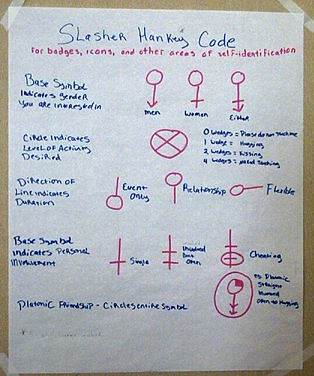 Slasher Hankey Code
for badges, icons, and other areas of self-identification
Base Symbol
Indicates gender
you are interested in
Men
Women
Either
Circle Indicates
Level of Activity
Desired
0 wedges = Please do not touch me
1 wedge = Hugging
2 wedges = Kissing
4 wedges = touching
Direction of
Line indicates
Duration
Event
Only
Relationship
Flexible
Base Symbol
Indicates Personal
Involvement
Single
Involved
but
Open
Cheating
Platonic Friendship - Circles entire symbol
Platonic
Straight
Involved
Open to Hugging